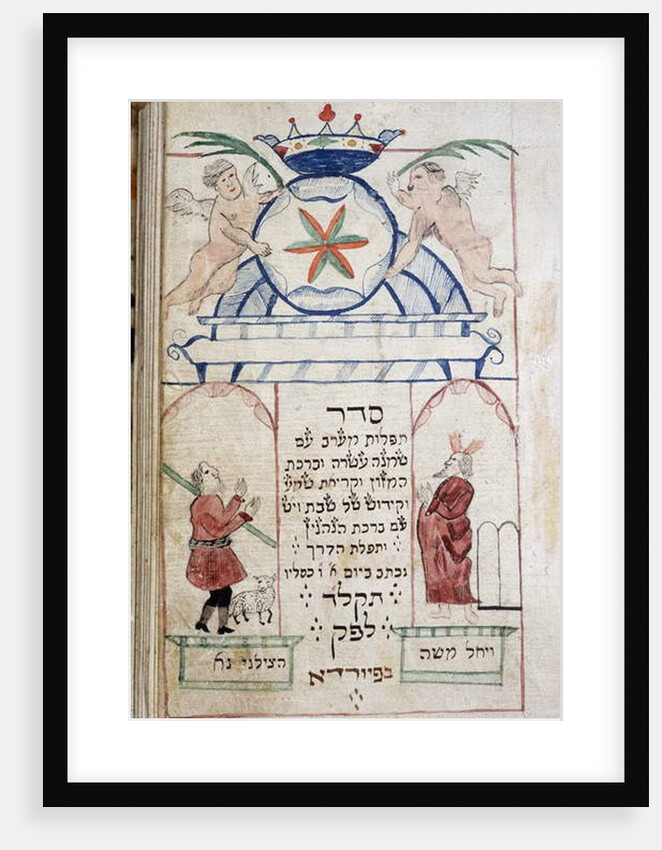 סדר
תפלות מערב עם
שמנה עשרה וברכת
המזון וקריאת שמע
וקידוש של שבת וי"ט
עם ברכת הנהנין
ותפלת הדרך
נכתב ביום א' ו כסליו
תקלד
לפק
בפיורדא
הצילני נא
ויחל משה